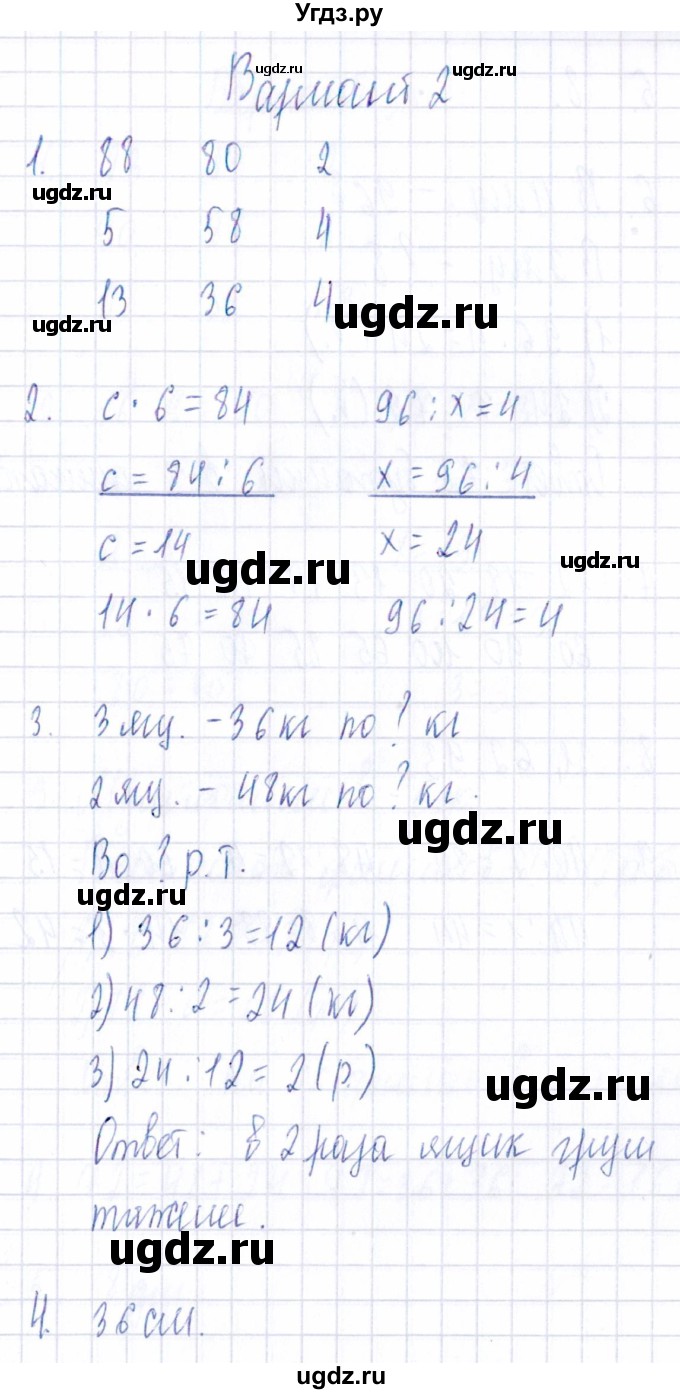 Угдз.ру
ugdz.ru
ugdz.ru
Вариант 2
1. 88 80 2
ugdz.ru
5 58 4
13 36 4
ugdz.ru
ugdz.ru
2. c · 6 = 84 96 : x = 4
c = 84 : 6 x = 96 : 4
c = 14 x = 24
ugdz.ru
ugdz.ru
14 · 6 = 84 96 : 24 = 4
3. 3 ящ. - 36 кг по ? кг
2 ящ. - 48 кг по ? кг.
ugdz.ru
Во ? р. т.
ugdz.ru
1) 36 : 3 = 12 (кг)
2) 48 : 2 = 24 (кг)
3) 24 : 12 = 2 (р.)
ugdz.ru
Ответ: в 2 раза ящик груш
тяжелее.
ugdz.ru
4. 36 см.
ugdz.ru